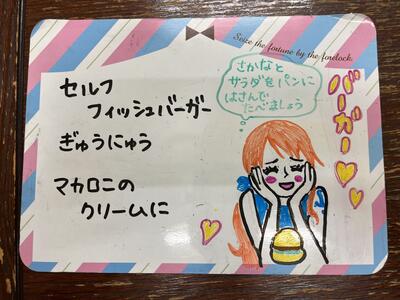 Seize the fortune by the forelock.
セルフ
フィッシュバーガー
ぎゅうにゅう
マカロニの
クリームに
さかなと
サラダをパンに
はさんで
たべましょう
バーガー